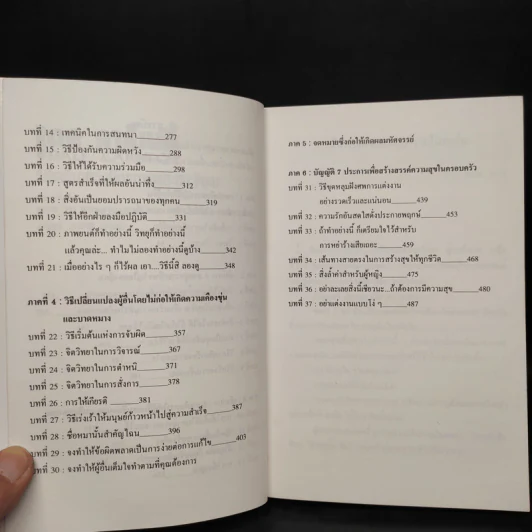 บทที่ 14 : เทคนิคในการสนทนา______277
บทที่ 15 : วิธีป้องกันความผิดหวัง______288
บทที่ 16 : วิธีให้ได้รับความร่วมมือ______298
บทที่ 17 : สูตรสำเร็จที่ให้ผลอันน่าทึ่ง______312
บทที่ 18 : สิ่งอันเป็นยอมปรารถนาของทุกคน______319
บทที่ 19 : วิธีให้อีกฝ่ายลงมือปฏิบัติ______331
บทที่ 20 : ภาพยนต์ก็ทำอย่างนี้ วิทยุก็ทำอย่างนี้
แล้วคุณล่ะ... ทำไมไม่ลองทำอย่างนี้ดูบ้าง______342
บทที่ 21 : เมื่ออย่างไร ๆ ก็ไร้ผล เอา...วิธีนี้สิ ลองดู______348
ภาคที่ 4 : วิธีเปลี่ยนแปลงผู้อื่นโดยไม่ก่อให้เกิดความเคืองขุ่น
และบาดหมาง
บทที่ 22 : วิธีเริ่มต้นแห่งการจับผิด______357
บทที่ 23 : จิตวิทยาในการวิจารณ์______367
บทที่ 24 : จิตวิทยาในการตำหนิ______371
บทที่ 25 : จิตวิทยาในการสั่งการ______378
บทที่ 26 : การให้เกียรติ______381
บทที่ 27 : วิธีเร่งเร้าให้มนุษย์ก้าวหน้าไปสู่ความสำเร็จ______387
บทที่ 28 : ชื่อหมานั้นสำคัญไฉน______396
บทที่ 29 : จงทำให้ข้อผิดพลาดเป็นการง่ายต่อการแก้ไข______403
บทที่ 30 : จงทำให้ผู้อื่นเต็มใจทำตามที่คุณต้องการ
ภาค 5 : จดหมายซึ่งก่อให้เกิดผลมหัศจรรย์
ภาค 6 : บัญญัติ 7 ประการเพื่อสร้างสรรค์ความสุขในครอบครัว
บทที่ 31 : วิธีขุดหลุมฝังศพการแต่งงาน
อย่างรวดเร็วและแน่นอน______439
บทที่ 32 : ความรักอันสดใสดั่งประกายพฤกษ์______453
บทที่ 33 : ถ้าทำอย่างนี้ ก็เตรียมใจไว้สำหรับ
การหย่าร้างเสียเถอะ______459
บทที่ 34 : เส้นทางสายตรงในการสร้างสุขให้ทุกชีวิต______468
บทที่ 35 : สิ่งล้ำค่าสำหรับผู้หญิง______475
บทที่ 36 : อย่าละเลยสิ่งนี้เชียวนะ...ถ้าต้องการมีความสุข______480
บทที่ 37 : อย่าแต่งงานแบบโง่ ๆ______487